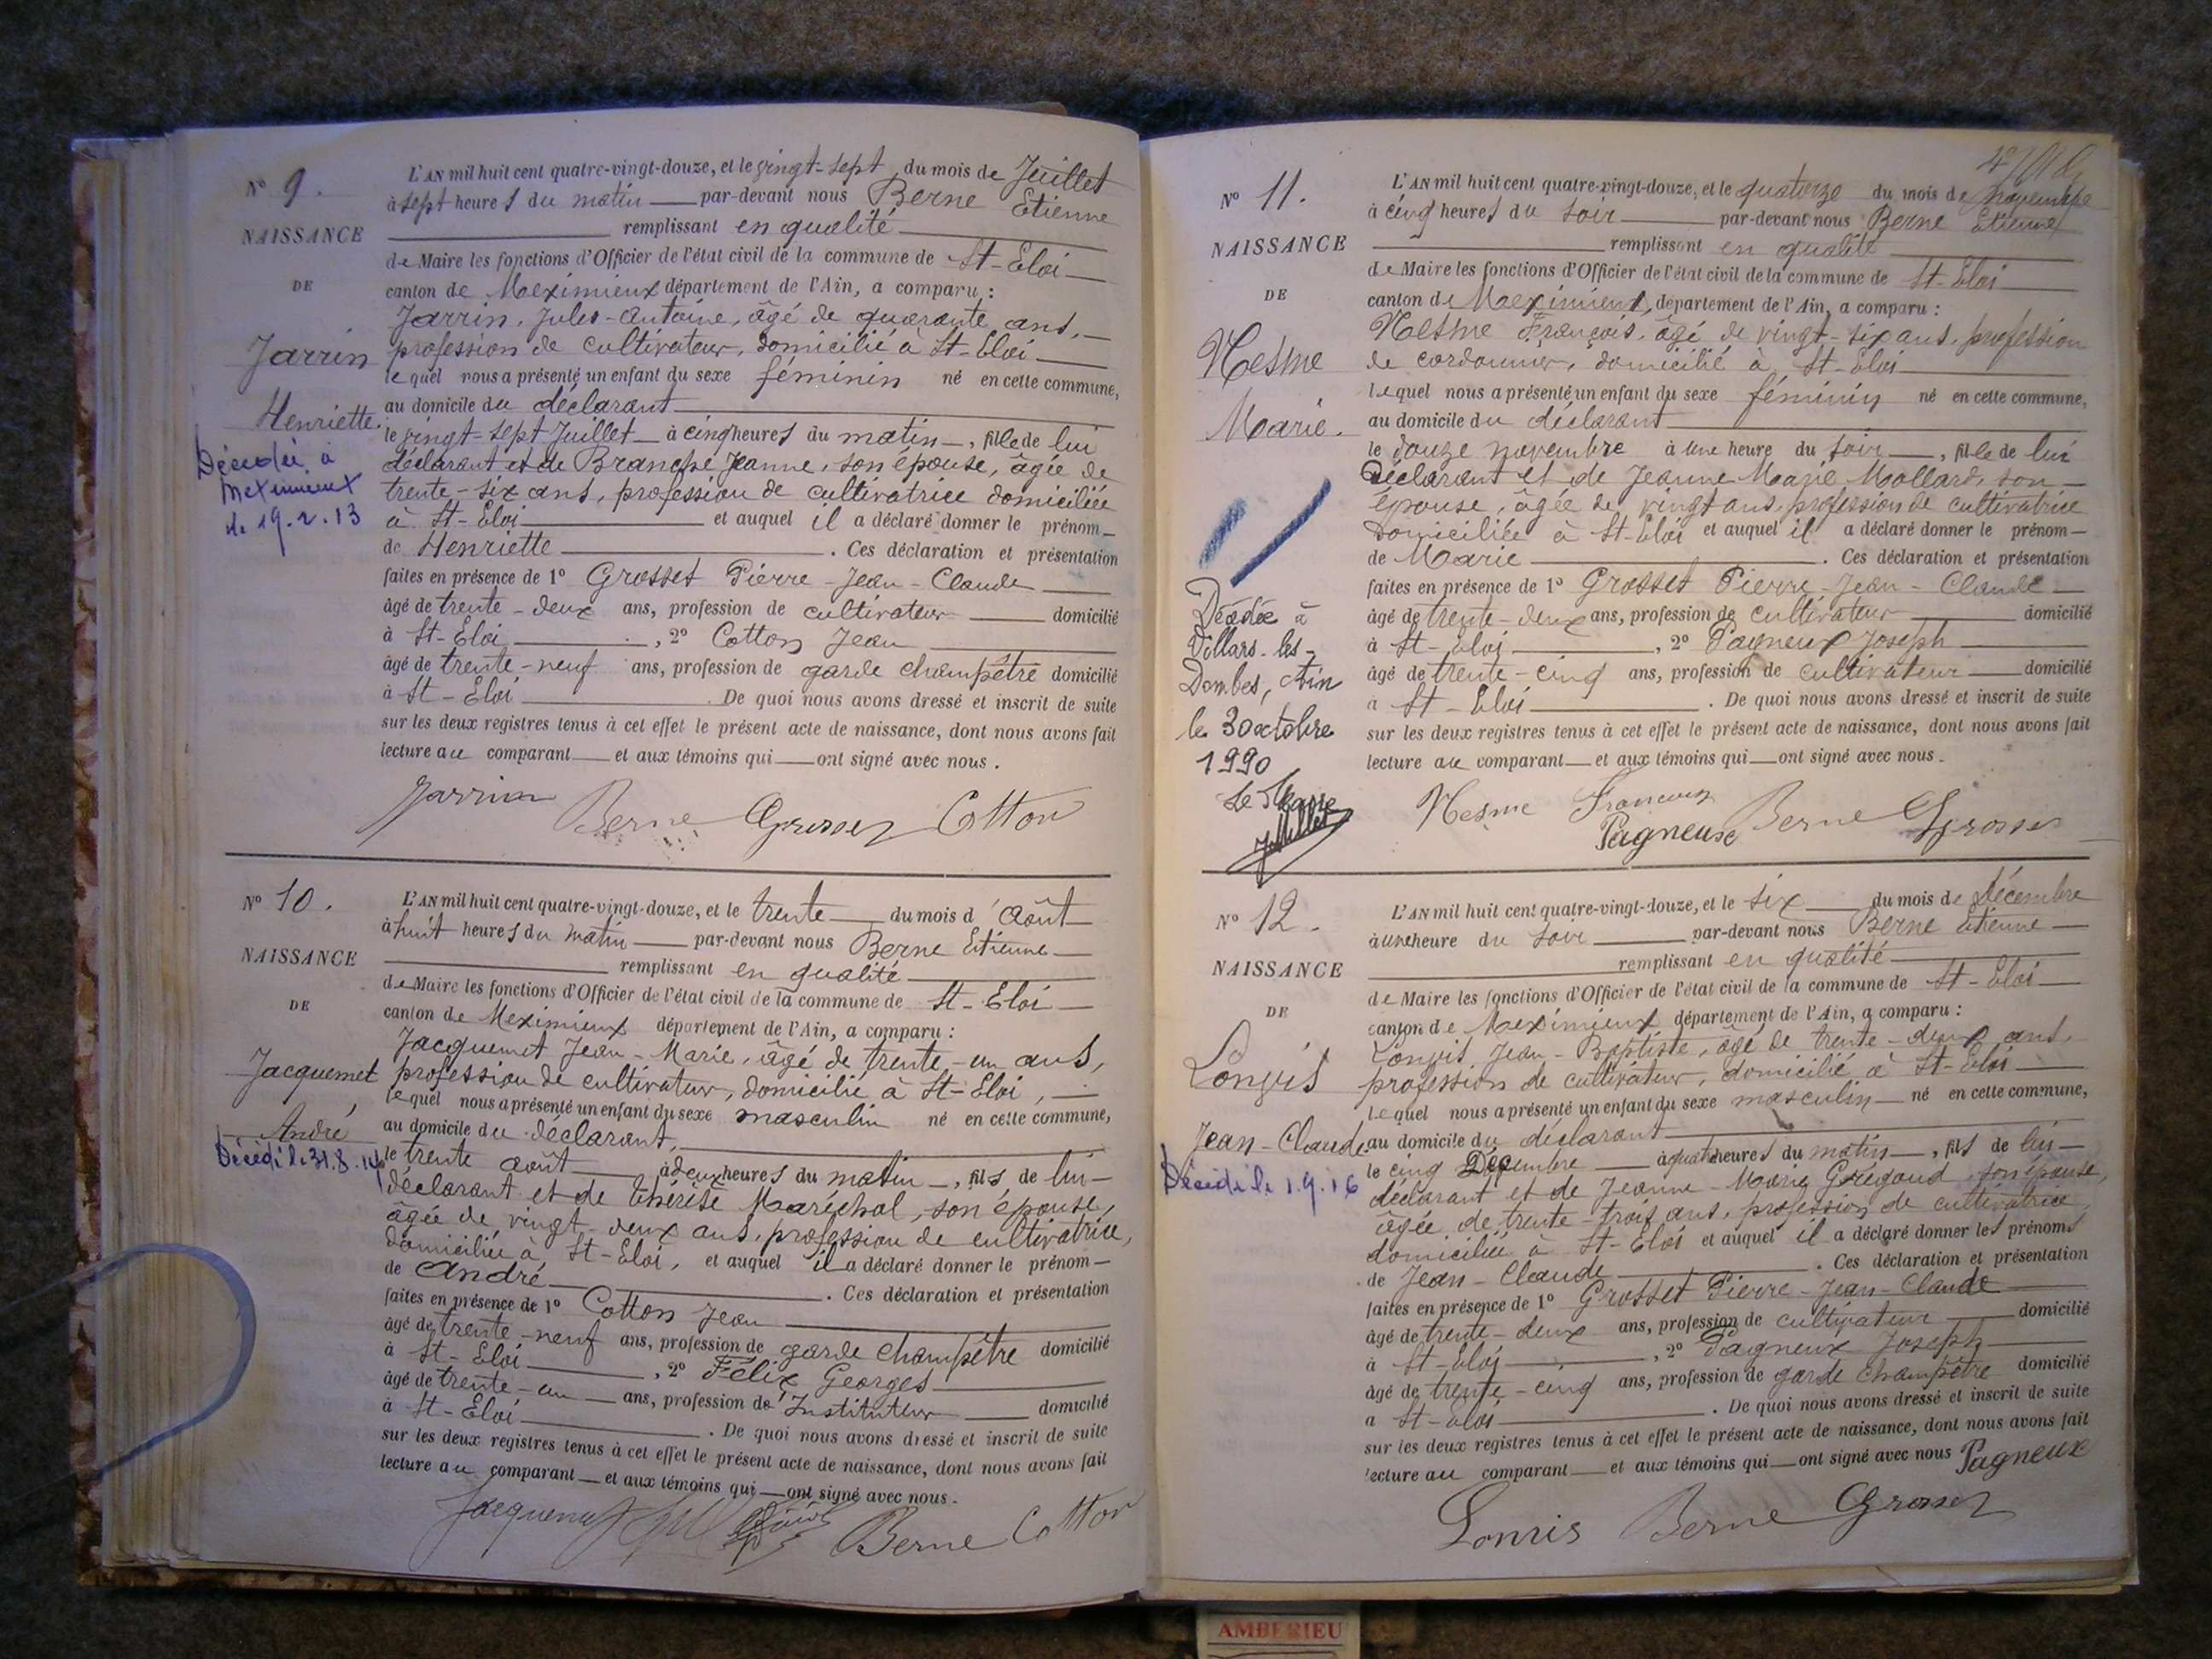 N° 9.
NAISSANCE
DE
Jarrin
Henriette.
Décédée à
Meximieux
le 19.2.13
L'AN mil huit cent quatre-vingt-douze, et le vingt-sept du mois de Juillet
à sept heures du matin par-devant nous Berne Etienne
remplissant en qualité
de Maire les fonctions d'Officier de l'état civil de la commune de St-Eloi
canton de Meximieux département de l'Ain, a comparu :
Jarrin, Jules-Antoine, âgé de quarante ans,
profession de cultivateur, domicilié à St-Eloi
lequel nous a présenté un enfant du sexe féminin né en cette commune,
au domicile du déclarant
le vingt-sept Juillet à cinq heures du matin, fille de lui
déclarant et de Branche Jeanne, son épouse, âgée de
trente-six ans, profession de cultivatrice domiciliée
à St-Eloi et auquel il a déclaré donner le prénom
de Henriette. Ces déclaration et présentation
faites en présence de 1° Grosset Pierre-Jean-Claude
âgé de trente-deux ans, profession de cultivateur domicilié
à St-Eloi, 2° Cotton Jean
âgé de trente-neuf ans, profession de garde champêtre domicilié
à St-Eloi. De quoi nous avons dressé et inscrit de suite
sur les deux registres tenus à cet effet le présent acte de naissance, dont nous avons fait
lecture au comparant et aux témoins qui ont signé avec nous.
Jarrin Berne Grosset Cotton
N° 10.
NAISSANCE
DE
Jacquemet
André
Décédé le 31.8.14
L'AN mil huit cent quatre-vingt-douze, et le trente du mois d'Août
à huit heures du matin par-devant nous Berne Etienne
remplissant en qualité
de Maire les fonctions d'Officier de l'état civil de la commune de St-Eloi
canton de Meximieux département de l'Ain, a comparu :
Jacquemet Jean-Marie, âgé de trente-un ans,
profession de cultivateur, domicilié à St-Eloi,
lequel nous a présenté un enfant du sexe masculin né en cette commune,
au domicile du déclarant,
le trente août à deux heures du matin, fils de lui
déclarant et de Thérèse Maréchal, son épouse,
âgée de vingt-deux ans, profession de cultivatrice,
domiciliée à St-Eloi, et auquel il a déclaré donner le prénom
de André. Ces déclaration et présentation
faites en présence de 1° Cotton Jean
âgé de trente-neuf ans, profession de garde champêtre domicilié
à St-Eloi, 2° Félix Georges
âgé de trente-un ans, profession de Instituteur domicilié
à St-Eloi. De quoi nous avons dressé et inscrit de suite
sur les deux registres tenus à cet effet le présent acte de naissance, dont nous avons fait
lecture au comparant et aux témoins qui ont signé avec nous.
Jacquemet Berne Cotton
N° 11.
NAISSANCE
DE
Nesme
Marie.
Décédée à
Villars-les-
Dombes, Ain
le 30 octobre
1990
Le Maire
L'AN mil huit cent quatre-vingt-douze, et le quatorze du mois de Novembre
à cinq heures du soir par-devant nous Berne Etienne
remplissant en qualité
de Maire les fonctions d'Officier de l'état civil de la commune de St-Eloi
canton de Meximieux, département de l'Ain, a comparu :
Nesme François, âgé de vingt-six ans, profession
de cordonnier, domicilié à St-Eloi
lequel nous a présenté un enfant du sexe féminin né en cette commune,
au domicile du déclarant
le douze novembre à une heure du soir, fille de lui
déclarant et de Jeanne Marie Mollard, son
épouse, âgée de vingt ans, profession de cultivatrice
domiciliée à St-Eloi et auquel il a déclaré donner le prénom
de Marie. Ces déclaration et présentation
faites en présence de 1° Grosset Pierre-Jean-Claude
âgé de trente-deux ans, profession de cultivateur domicilié
à St-Eloi, 2° Pagneux Joseph
âgé de trente-cinq ans, profession de cultivateur domicilié
à St-Eloi. De quoi nous avons dressé et inscrit de suite
sur les deux registres tenus à cet effet le présent acte de naissance, dont nous avons fait
lecture au comparant et aux témoins qui ont signé avec nous.
Nesme François Berne Grosset
Pagneux
N° 12.
NAISSANCE
DE
Longis
Jean-Claude
Décédé le 1.9.16
L'AN mil huit cent quatre-vingt-douze, et le six du mois de Décembre
à une heure du soir par-devant nous Berne Etienne
remplissant en qualité
de Maire les fonctions d'Officier de l'état civil de la commune de St-Eloi
canton de Meximieux département de l'Ain, a comparu :
Longis Jean-Baptiste, âgé de trente-deux ans,
profession de cultivateur, domicilié à St-Eloi
lequel nous a présenté un enfant du sexe masculin né en cette commune,
au domicile du déclarant
le cinq Décembre à quatre heures du matin, fils de lui
déclarant et de Jeanne-Marie Grégaud, son épouse,
âgée de trente-trois ans, profession de cultivatrice,
domiciliée à St-Eloi et auquel il a déclaré donner les prénoms
de Jean-Claude. Ces déclaration et présentation
faites en présence de 1° Grosset Pierre-Jean-Claude
âgé de trente-deux ans, profession de cultivateur domicilié
à St-Eloi, 2° Pagneux Joseph
âgé de trente-cinq ans, profession de garde champêtre domicilié
a St-Eloi. De quoi nous avons dressé et inscrit de suite
sur les deux registres tenus à cet effet le présent acte de naissance, dont nous avons fait
lecture au comparant et aux témoins qui ont signé avec nous Pagneux
Berne Grosset
AMBERIEU